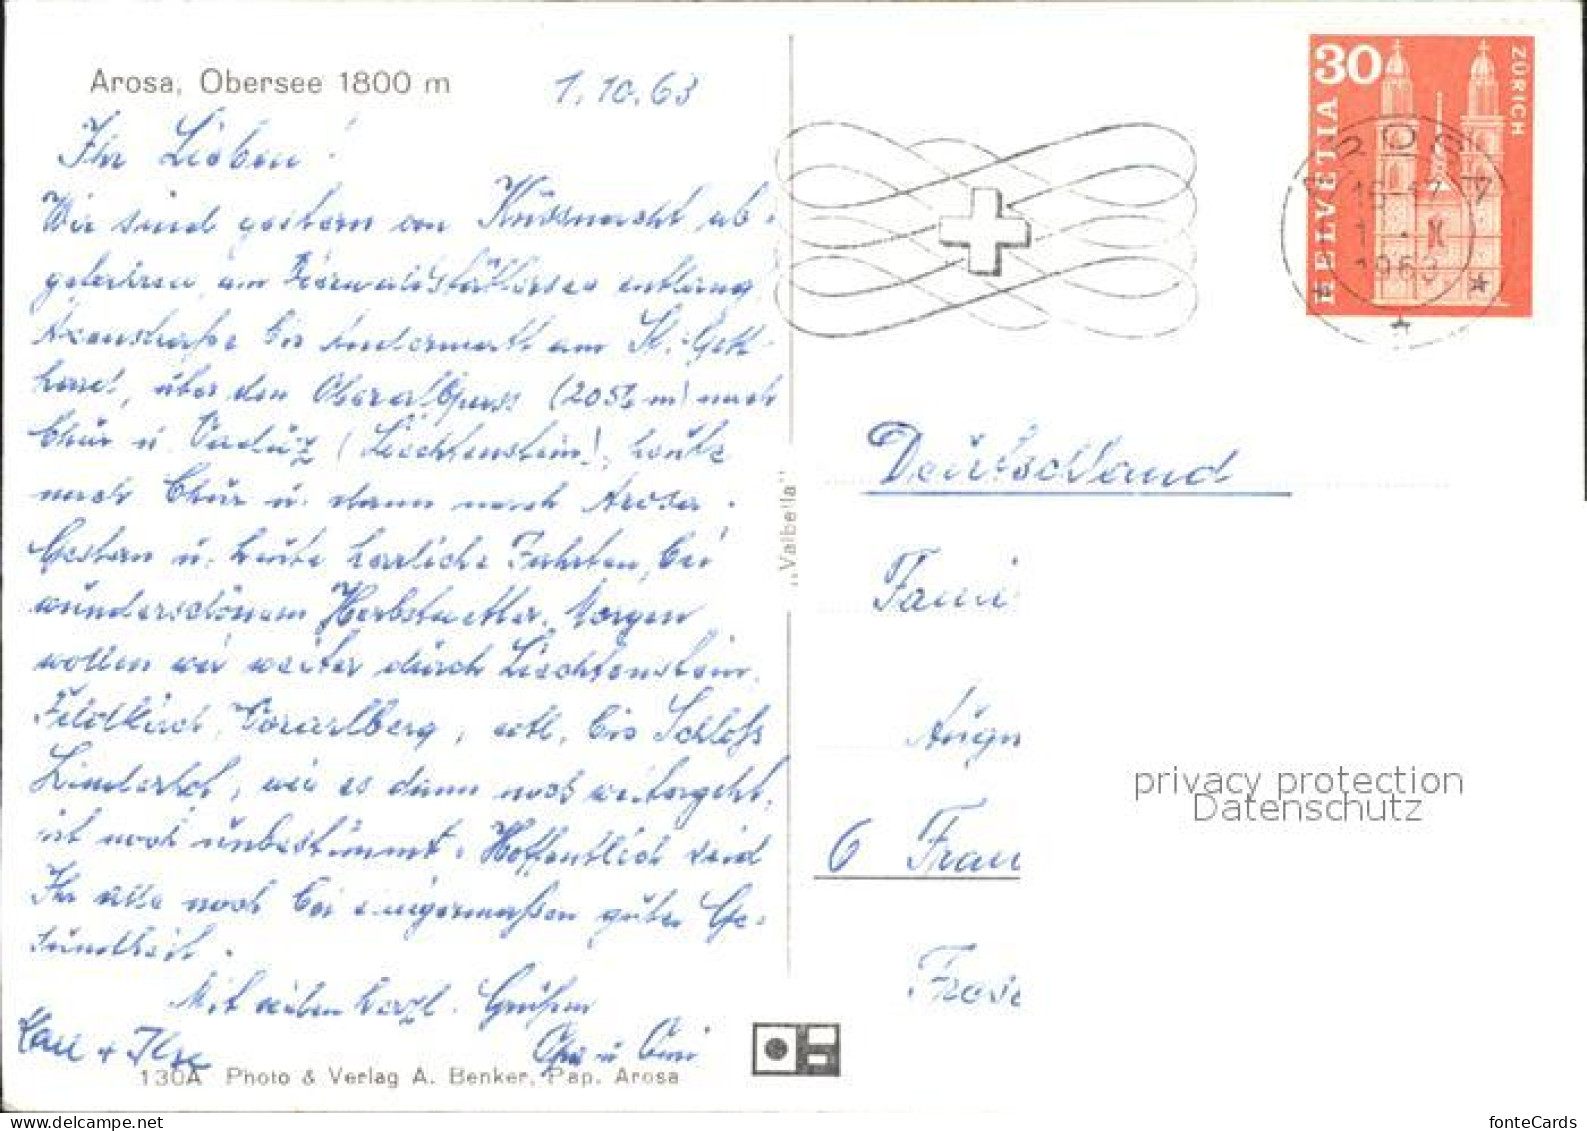 Arosa, Obersee 1800 m
1.10.63
Ihr Lieben!
Wir sind gestern von Küssnacht ab-
gefahren am Vierwaldstättersee entlang
Axenstraße bis Andermatt am St. Gott-
hard, über den Oberalppass (2056 m) nach
Chur u. Vaduz (Liechtenstein), heute
nach Chur u. dann nach Arosa.
Gestern u. heute herrliche Fahrten, bei
wunderschönem Herbstwetter. Morgen
wollen wir weiter durch Liechtenstein,
Feldkirch, Vorarlberg, evtl. bis Schloß
Linderhof, wie es dann noch weitergeht,
ist noch unbestimmt. Hoffentlich seid
Ihr alle noch bei einigermaßen guter Ge-
sundheit.
Mit vielen herzl. Grüßen
Opa u Omi
Karl + Ilse
130A Photo & Verlag A. Benker, Pap. Arosa
"Valbella"
HELVETIA
30
ZÜRICH
AROSA
16-17
1.X
1963
Deutschland
Fami
Augu
6 Fran
privacy protection
Datenschutz
fonteCards